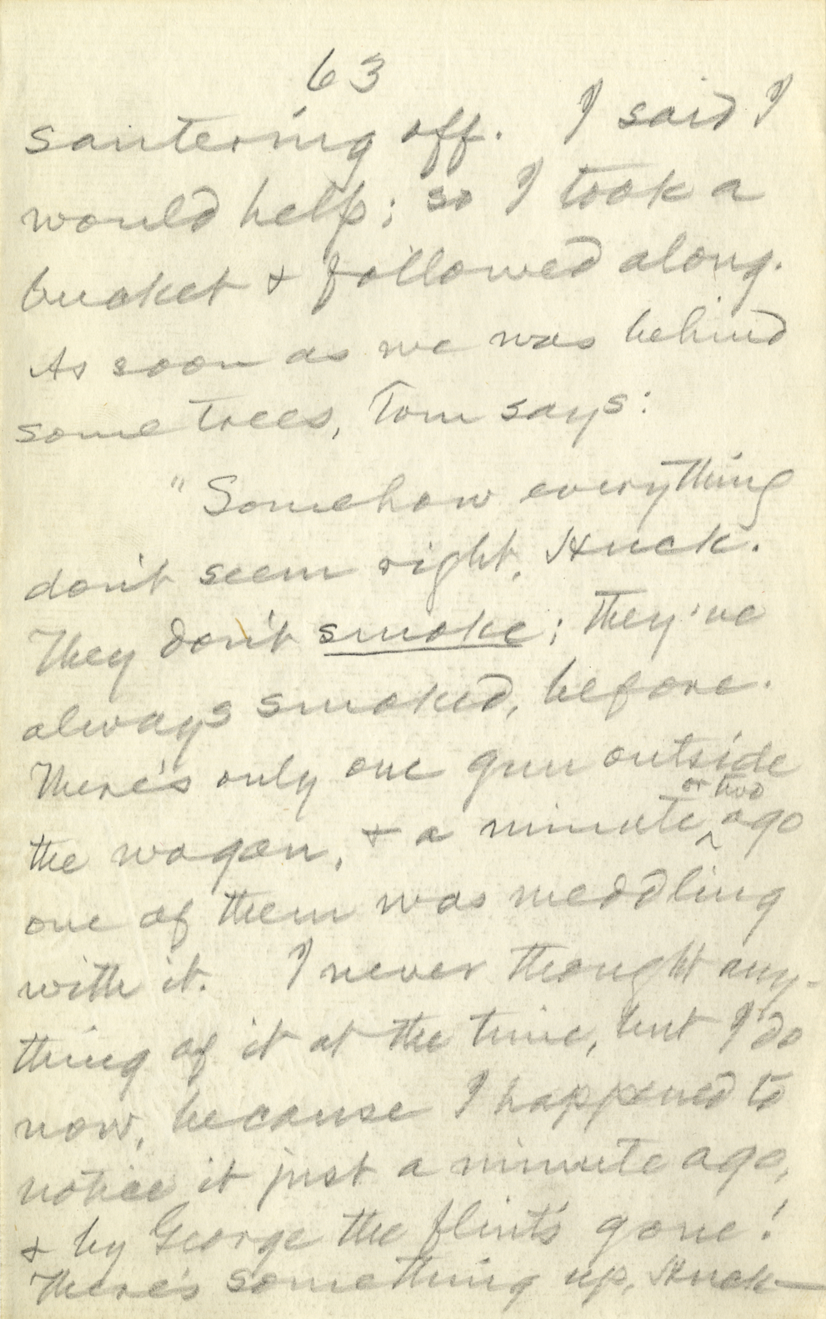 63
santering off. I said I
would help; so I took a
bucket & followed along.
As soon as we was behind
some trees, Tom says:
"Somehow everything
don't seem right, Huck.
They don't smoke; they've
always smoked, before.
There's only one gun outside
or two
the wagon, & a minute ^ ago
one of them was meddling
with it. I never thought any-
thing of it at the time, but I do
now, because I happened to
notice it just a minute ago,
& by George the flint's gone!
There's something up, Huck—